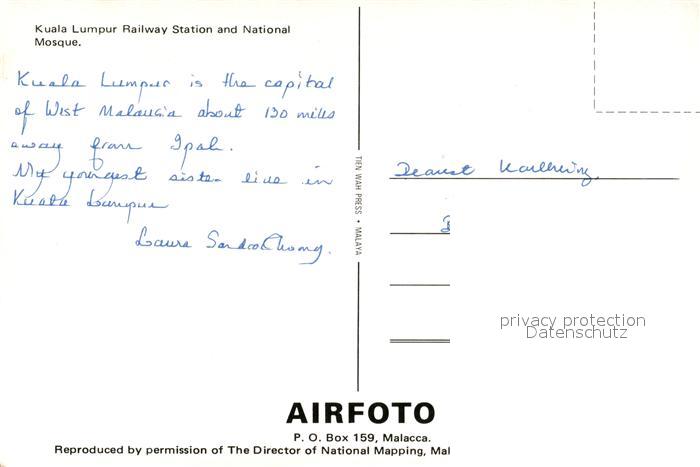 Kuala Lumpur Railway Station and National
Mosque.
Kuala Lumpur is the capital
of West Malaysia about 130 miles
away from Ipoh.
My youngest sister live in
Kuala Lumpur
Laura
TIEN WAH PRESS • MALAYA
Dearest
privacy protection
Datenschutz
AIRFOTO
P. O. Box 159, Malacca.
Reproduced by permission of The Director of National Mapping, Mal